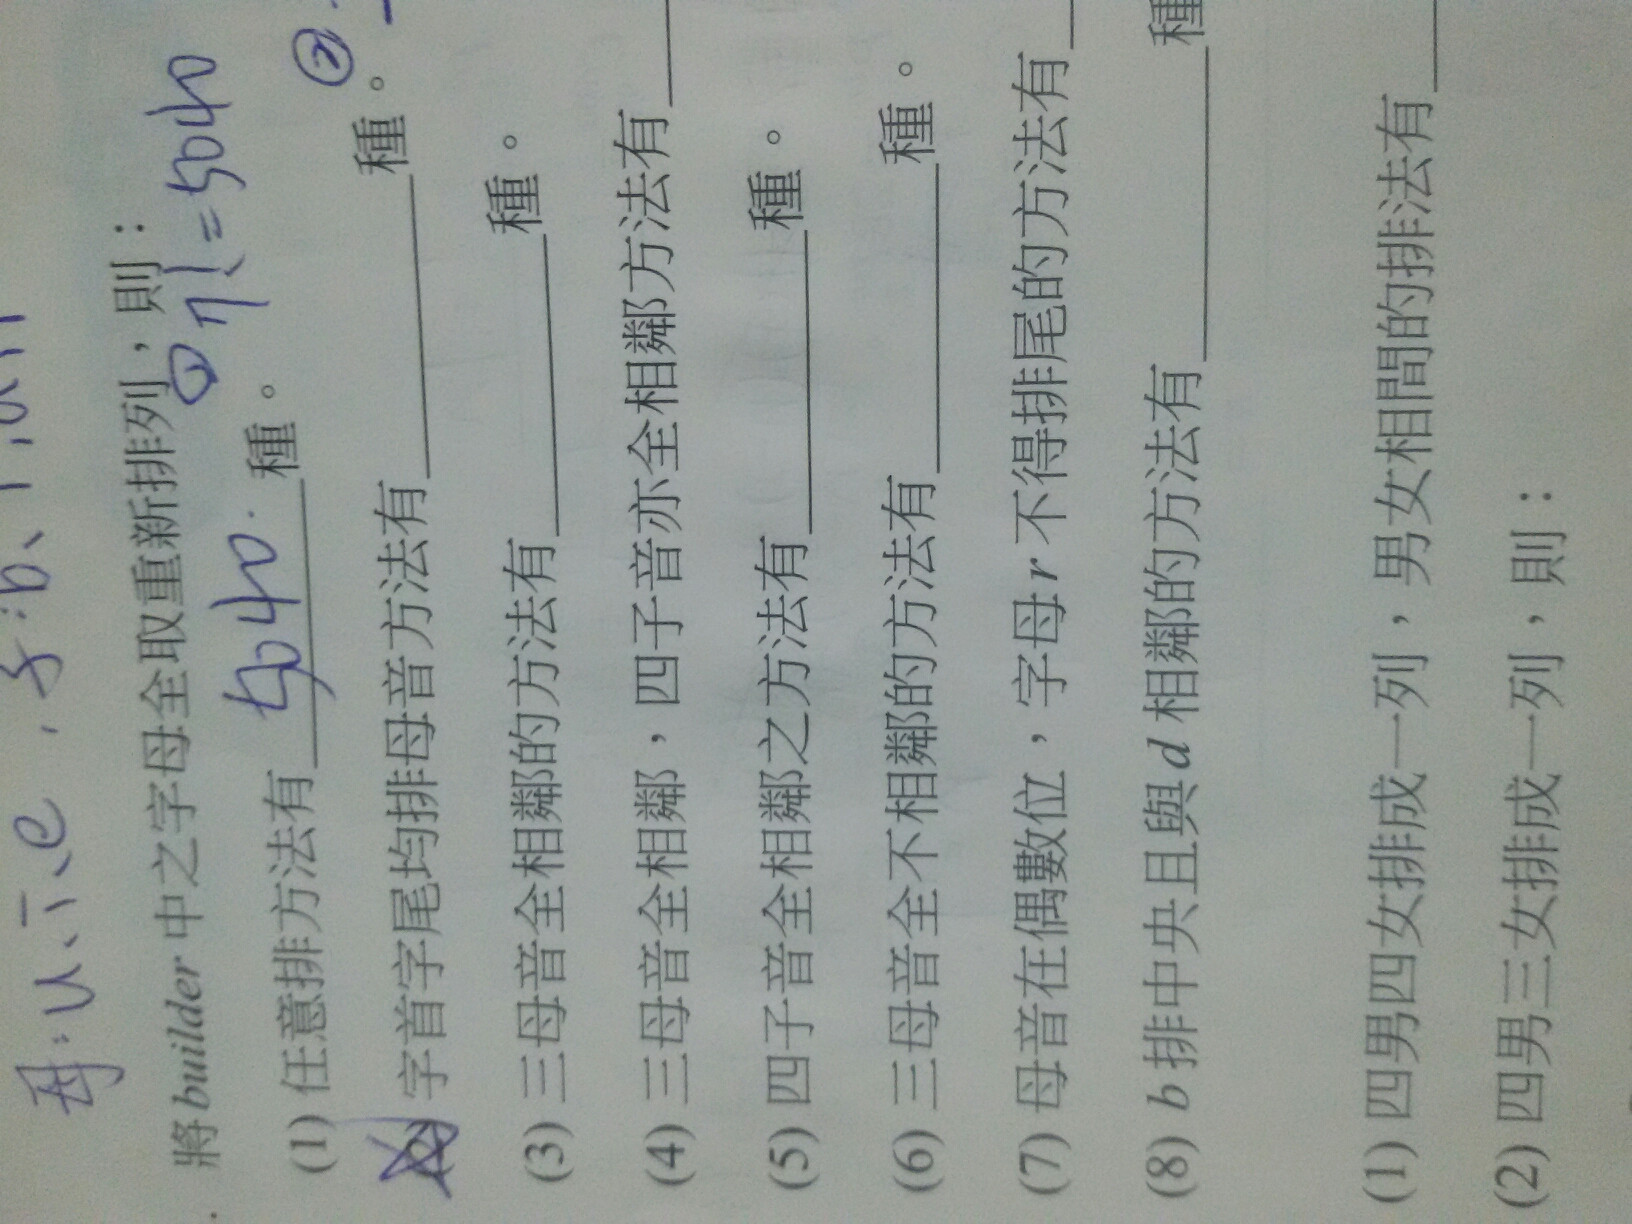 母:u、i、e,子:b、l、d、r
將builder中之字母全取重新排列,則:
① 7!=5040
(1) 任意排方法有 5040. 種。
字首字尾均排母音方法有 種。 ②
(3) 三母音全相鄰的方法有 種。
(4) 三母音全相鄰,四子音亦全相鄰方法有
(5) 四子音全相鄰之方法有 種。
(6) 三母音全不相鄰的方法有 種。
(7) 母音在偶數位,字母r不得排尾的方法有
(8) b排中央且與d相鄰的方法有 種
(1) 四男四女排成一列,男女相間的排法有
(2) 四男三女排成一列,則: